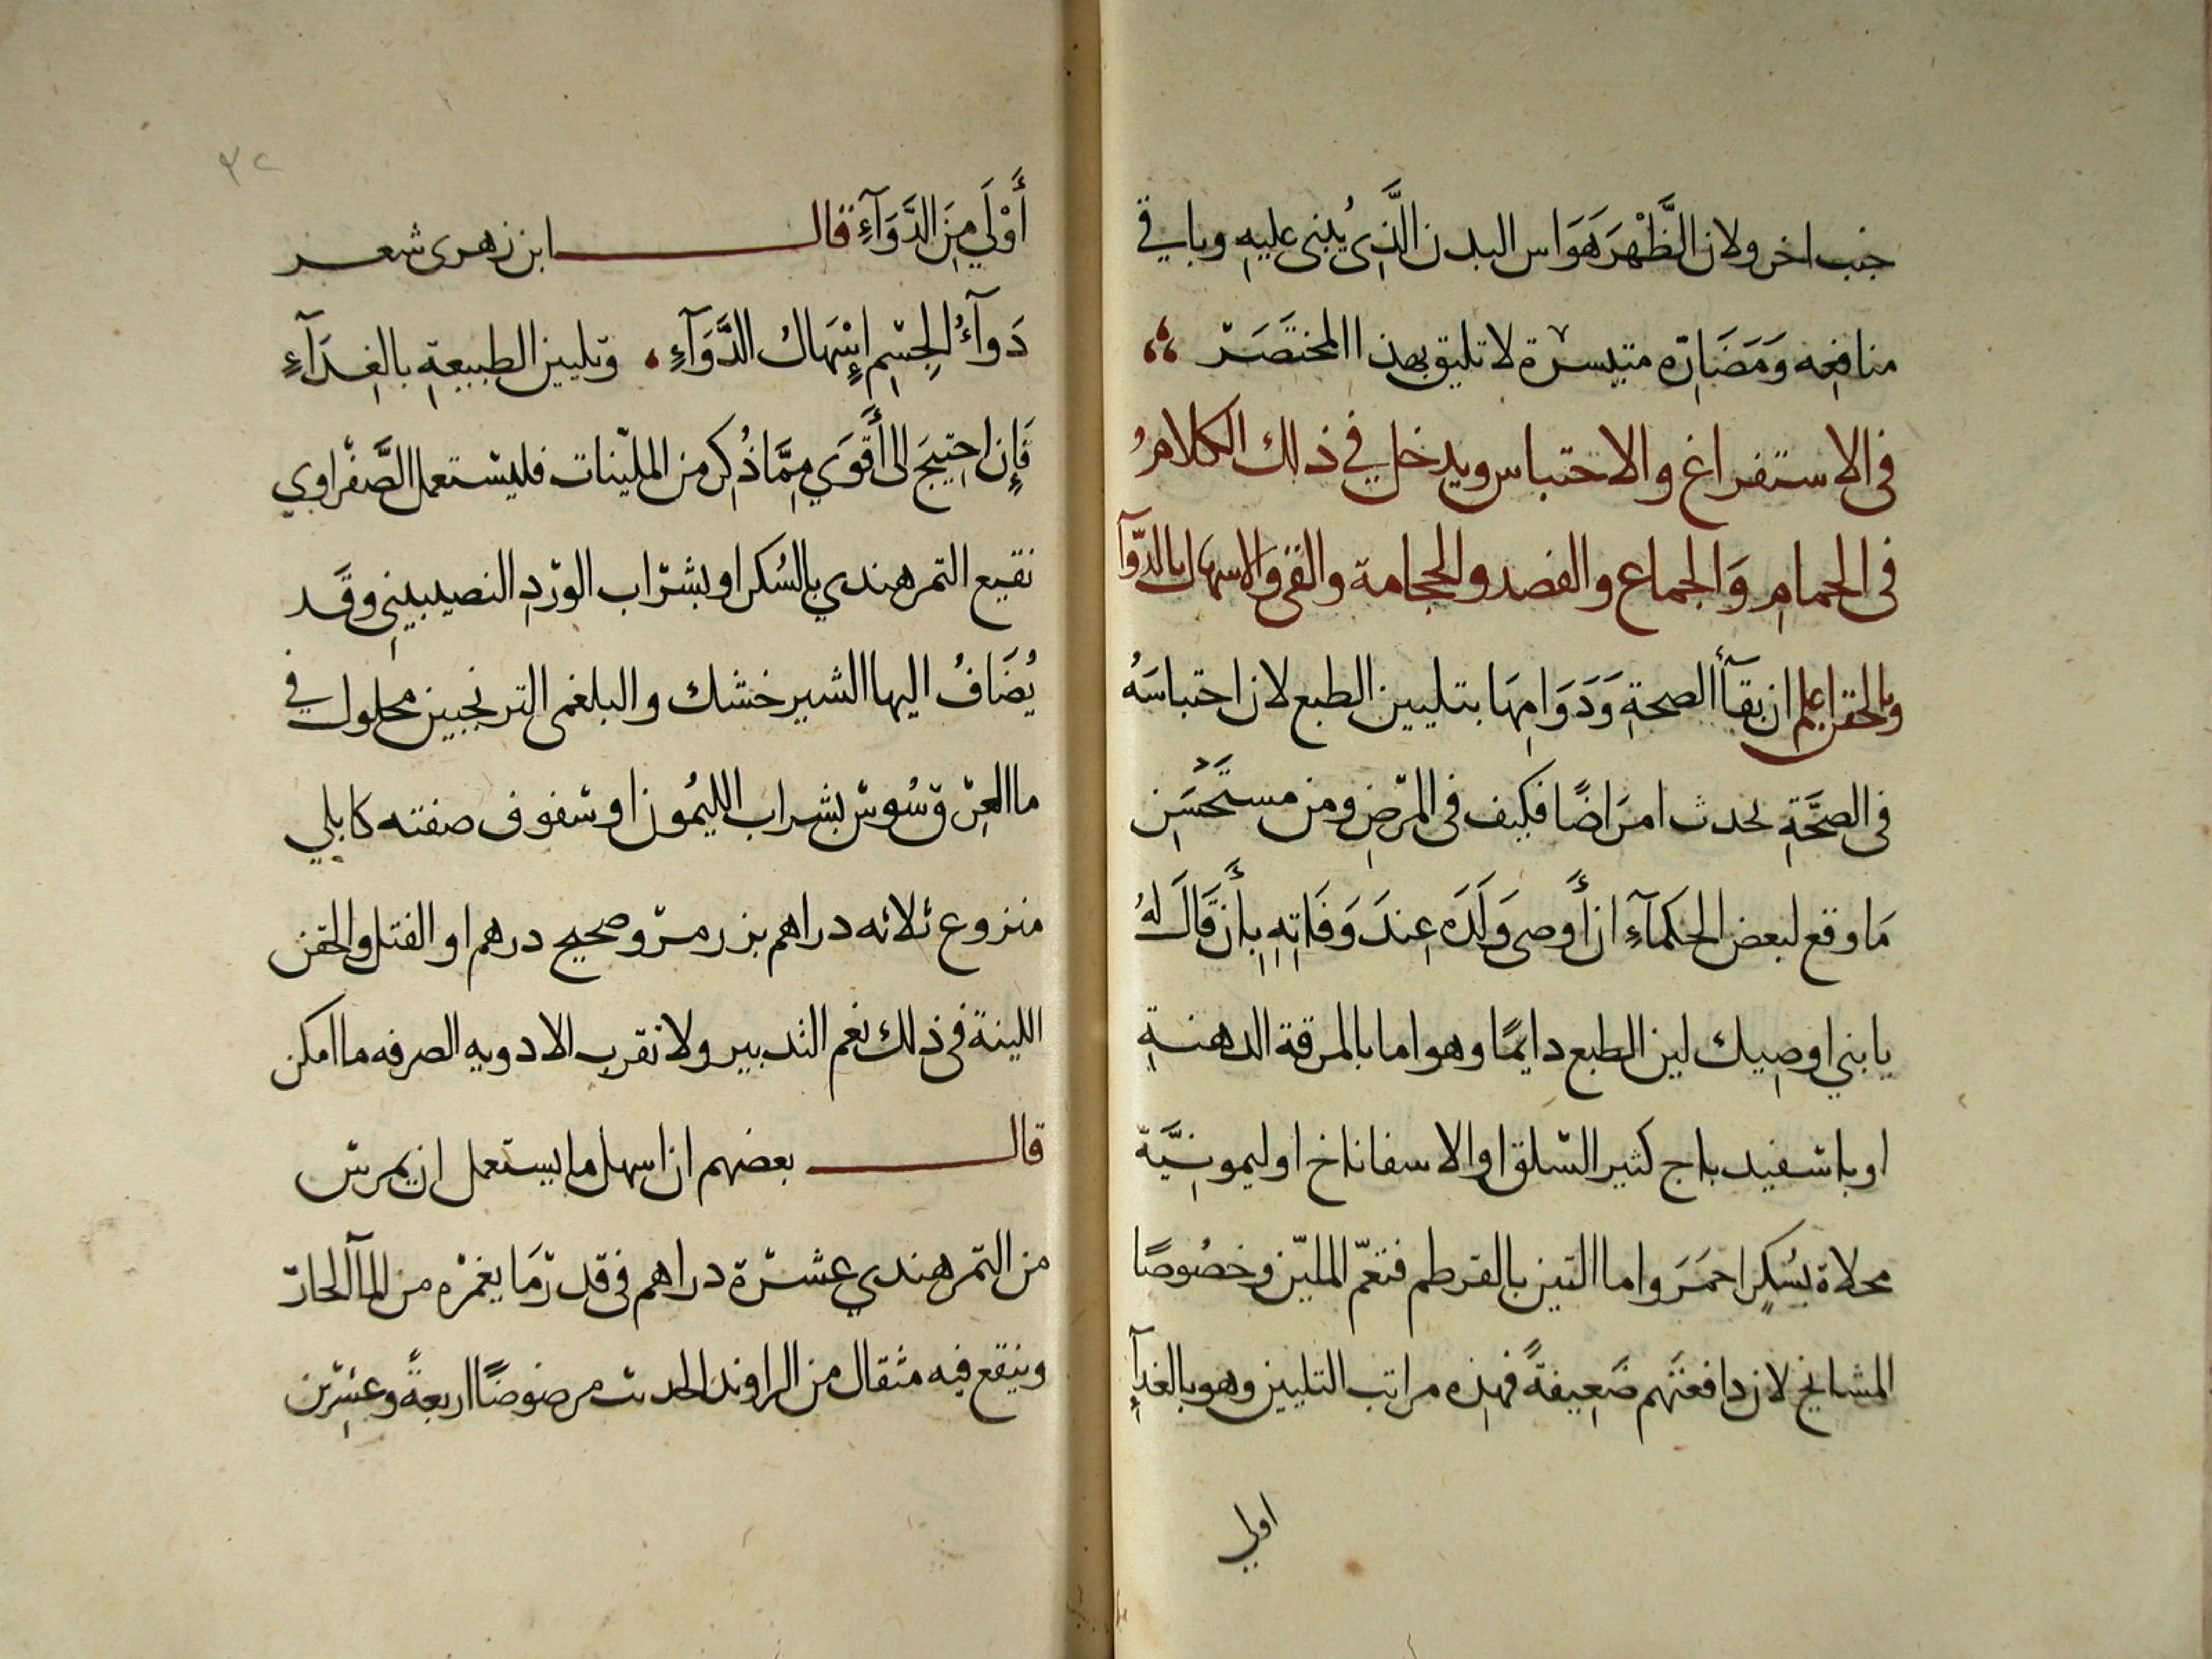 جنب اخر ولان الظَّهْرَ هَوَ اس البدن الَّذِى يُبنى عليهِ وباقي
منافِعِه وَمَضَارِّه متيسرة لا تليق بهذا المختَصَرْ
فى الاستفراغ والاحتباس ويدخل في ذلك الكلامُ
فى الحمامِ وَالجماع والفصد والحجامة والقئ والاسهال بالدَّوآ
وبالحقن اعلم ان بقآأ الصحةِ وَدَوَامِهَا بتليين الطبع لان احتباسَهُ
فى الصحَّةِ يحدث امرَاضًا فكيف فى المرَضِ ومن مستَحْسَنِ
مَا وقع لبعض الحكمآءِ ان أَوصى وَلَدَه عِندَ وَفَاتِهِ بِأَن قَالَ لهُ
يا بني اوصِيك لين الطبع دايمًا وهو اما بالمرقة الدهنةِ
او باسفيد باج كثير السّلق او الاسفاناخ او ليمونِيَّة
محلاة بسُكرٍ احمَرَ واما التين بالقرطم فنعمّ المليّن وخصُوصًا
المشايخ لان دافعتهم ضَعِيفةً فهذِه مراتب التليين وهو بالغدآءِ
اولي
٣٢
أَوْلَي مِنَ الدَّوَآءِ قال ابن زهرى شعر
دَوآءُ لجِسْمِ إِسْهَالُ الدَّوَآءِ وتليين الطبيعةِ بالغِدَآءِ
فَإِن احِتيجَ الى أَقوَي مِمَّا ذُكِر من المليّنات فليستعمل الصَّفْراوي
نقيع التمر هندي بالسُكر او بشرَاب الورْدِ النصيبيني وقَد
يُضَافُ اليها الشيرخشك والبلغمى الترنجبين محلول في
ما العِرْق سُوسْ بشراب الليمُون او سفوف صفته كابلي
منزوع ثلاثه دراهم بزر مرّو صحيح درهم او الفتل والحقن
اللينة فى ذلك نعم التدبير ولا تقرب الادويه الصرفه ما امكن
قال بعضهم ان اسهل ما يستعمل ان يمرسْ
من التمر هندي عشرَة دراهم فى قدرٍ مَا يغمرْه من المآ الحارّ
وينقع فيه مثقال من الراوند الحديث مرضوضًا اربعةً وعِشرْين